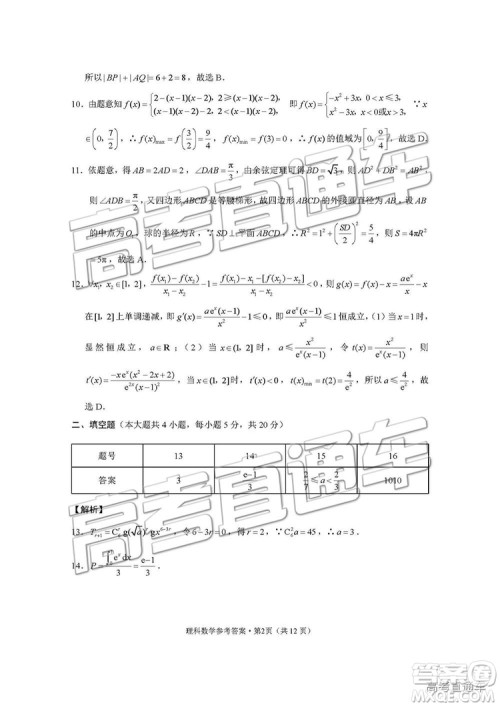 所以|BP|+|AQ|=6+2=8，故选 B．
10．由题意知 f(x)={2-(x-1)(x-2)，2≥(x-1)(x-2) (x-1)(x-2)-2，2<(x-1)(x-2) 即 f(x)={-x²+3x，0<x≤3， x²-3x，x<0或x>3，∵x
∈(0，7/2)，∴f(x)max=f(3/2)=9/4，∴f(x)min=f(3)=0，∴f(x)的值域为[0，9/4]，故选 D．
11．依题意，得 AB=2AD=2，∠DAB=π/3，由余弦定理可得 BD=√3，则 AD²+DB²=AB²，
则∠ADB=π/2，又四边形 ABCD 是等腰梯形，故四边形 ABCD 的外接圆直径为 AB．设 AB
的中点为 O₁，球的半径为 R，∵SD⊥平面 ABCD，∴R²=1²+(SD/2)²=5/4，则 S=4πR²
=5π，故选 A．
12．∀x₁，x₂∈[1，2]，(f(x₁)-f(x₂))/(x₁-x₂)-1=(f(x₁)-x₁-[f(x₂)-x₂])/(x₁-x₂)<0，则 g(x)=f(x)-x=aeˣ/x-x
在[1，2]上单调递减，即 g′(x)=aeˣ(x-1)/x²-1≤0，即 aeˣ(x-1)/x²≤1 恒成立，（1）当 x=1 时，
显然恒成立，a∈R；（2）当 x∈(1，2]时，a≤x²/(eˣ(x-1))，令 t(x)=x²/(eˣ(x-1))，
t′(x)=-xeˣ(x²-2x+2)/(e²ˣ(x-1)²)，当 x∈(1，2]时，t′(x)<0，t(x)min=t(2)=4/e²，∴a≤4/e²，所以 故
选 D．
二、填空题（本大题共 4 小题，每小题 5 分，共 20 分）
题号 13 14 15 16
答案 3 (e-1)/3 2/7≤a<2/3 1010
【解析】
13．Tr+1=C₆ʳg(√a)ʳgx⁶⁻³ʳ，令 6-3r=0，得 r=2，∵C₆²a=45，∴a=3．
14．P=∫₀¹eˣdx/3=(e-1)/3．
理科数学参考答案·第2页（共 12 页）
高考直通车
高考直通车